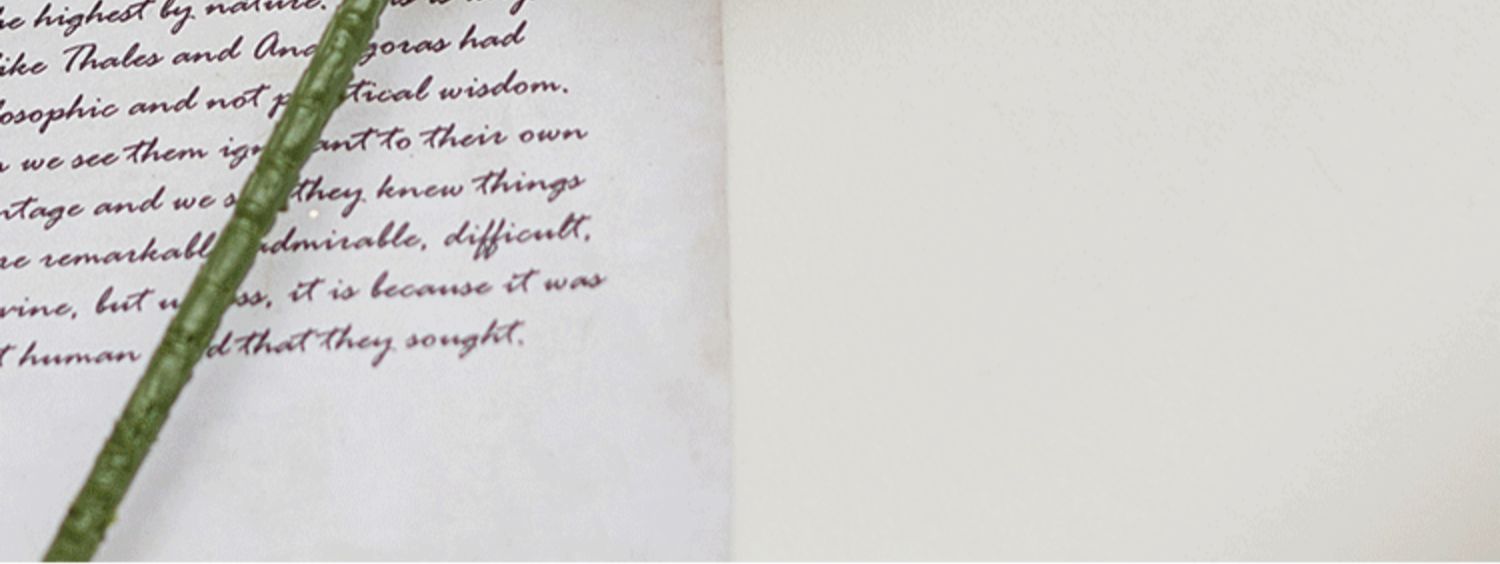 he highest by nature.
like Thales and Anaxagoras had
losophic and not practical wisdom.
we see them ignorant to their own
ntage and we say they knew things
re remarkable, admirable, difficult,
vine, but useless, it is because it was
t human good that they sought.